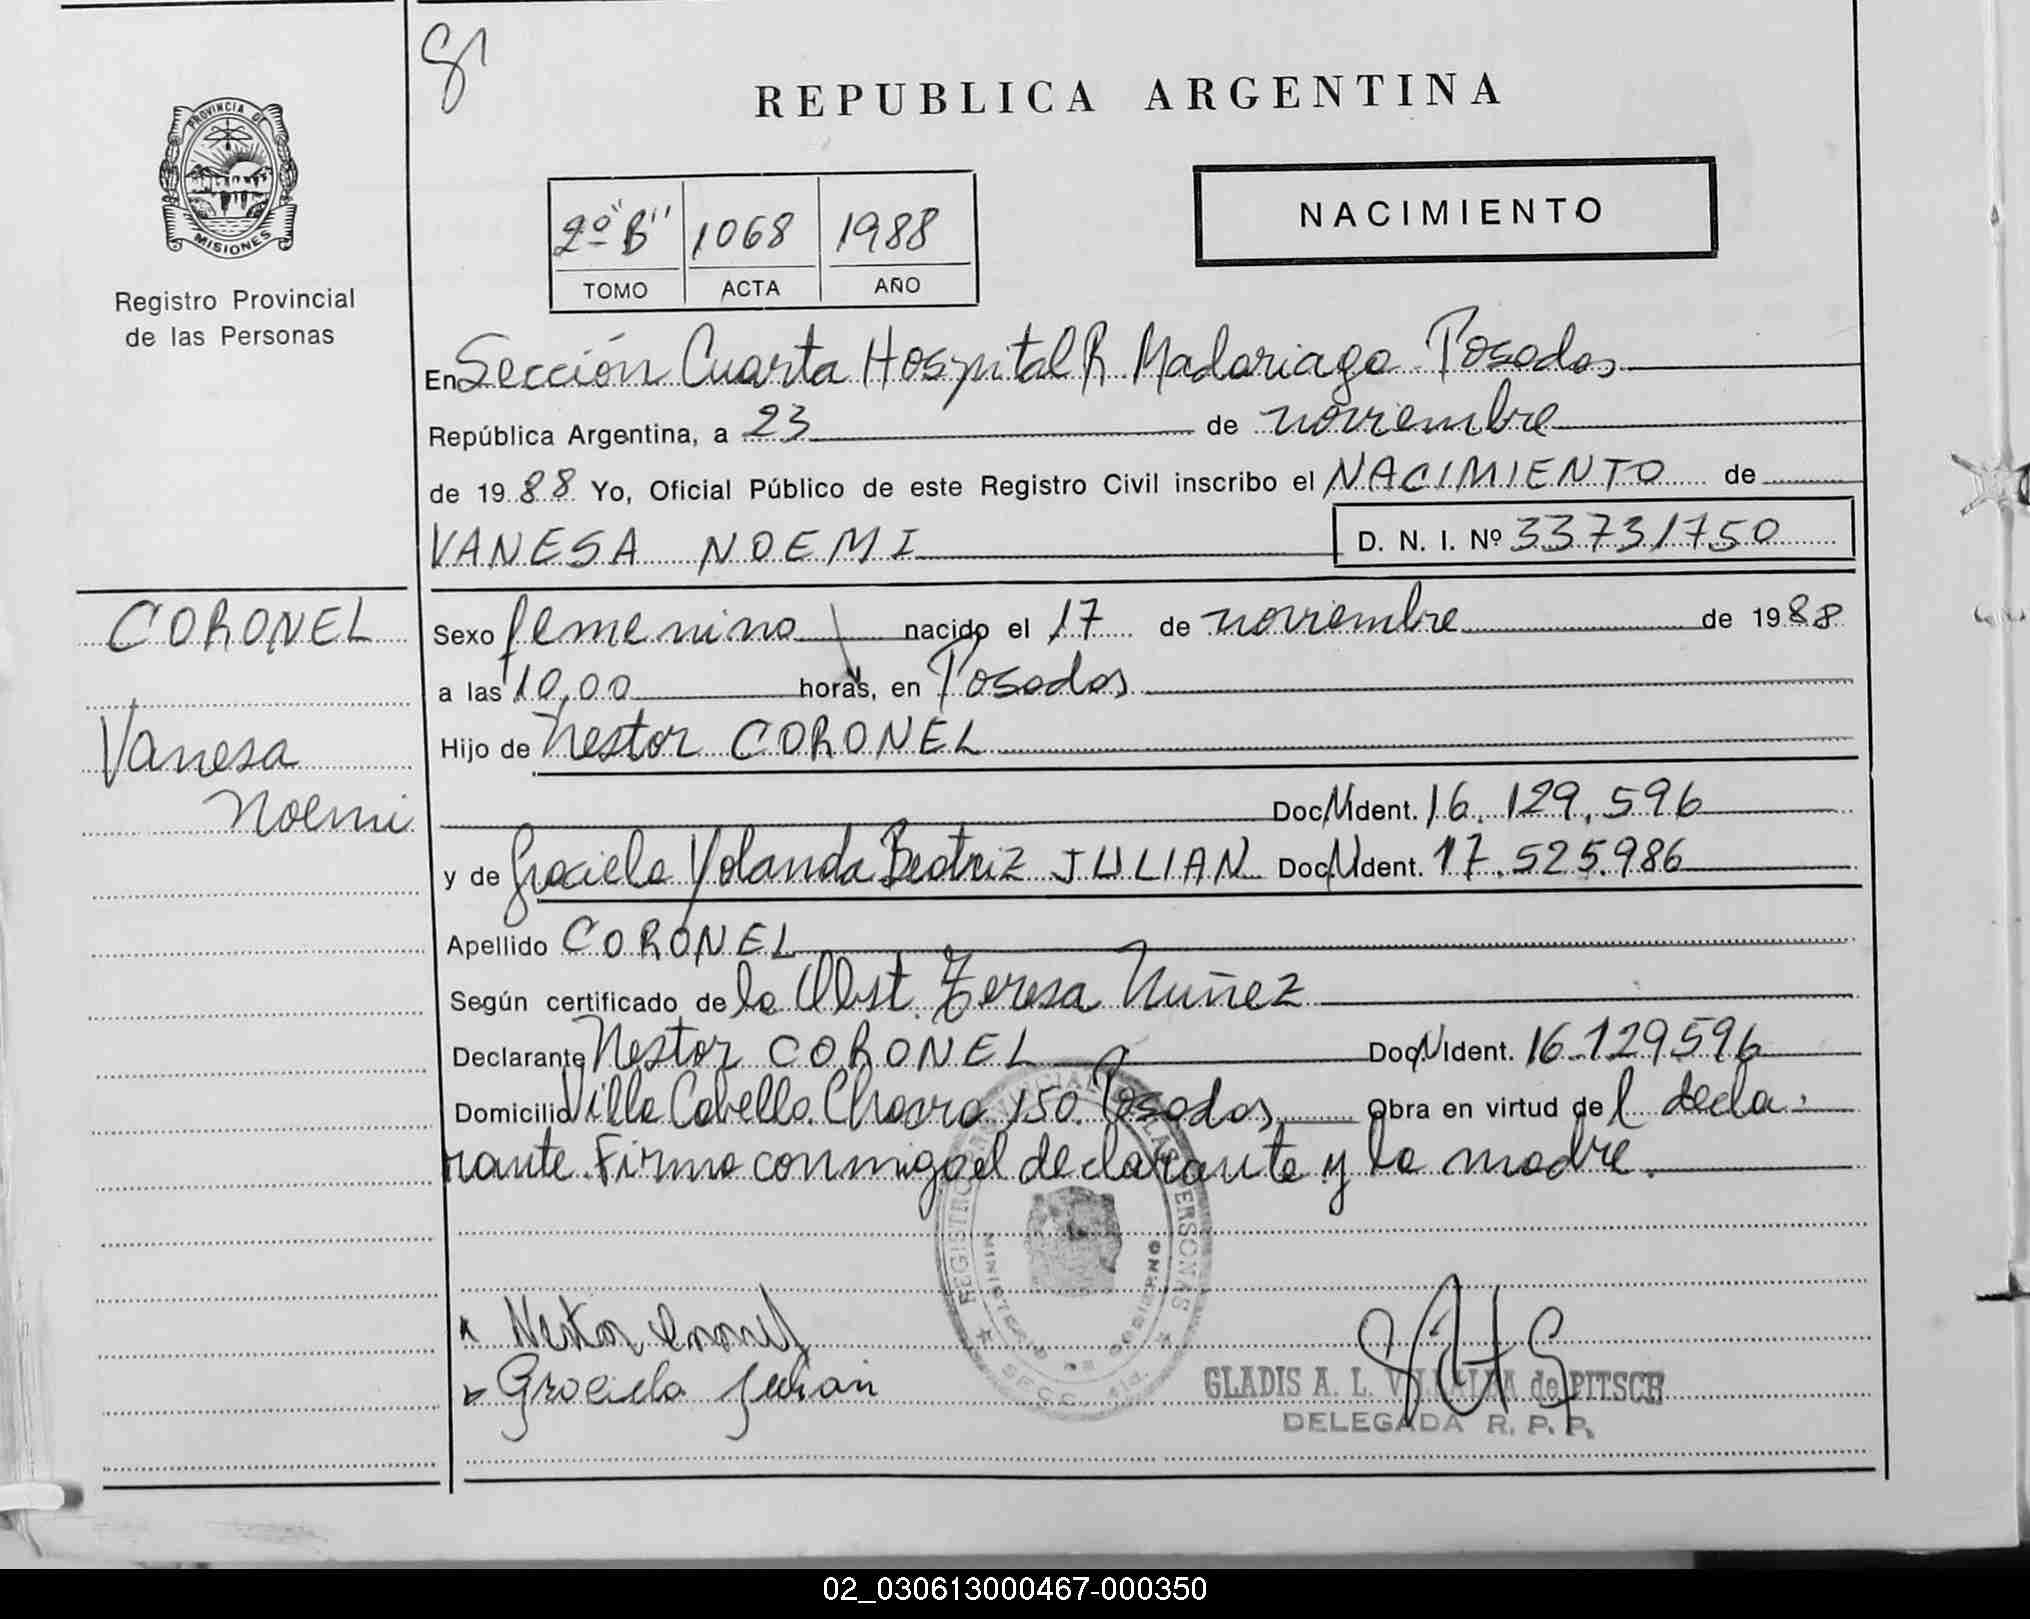 PROVINCIA DE
MISIONES
Registro Provincial
de las Personas
CORONEL
Vanesa
Noemi
REPUBLICA ARGENTINA
2º "B" 1068 1988
TOMO ACTA AÑO
NACIMIENTO
En Sección Cuarta Hospital R. Madariaga Posadas
República Argentina, a 23 de noviembre
de 1988 Yo, Oficial Público de este Registro Civil inscribo el NACIMIENTO de
VANESA NOEMI D. N. I. Nº 33731750
Sexo femenino nacido el 17 de noviembre de 1988
a las 10,00 horas, en Posadas
Hijo de Nestor CORONEL
Doc. Ident. 16.129.596
y de Graciela Yolanda Beatriz JULIAN Doc. Ident. 17.525.986
Apellido CORONEL
Según certificado de la Obst. Teresa Nuñez
Declarante Nestor CORONEL Doc. Ident. 16.129596
Domicilio Villa Cabello. Chacra 150. Posadas Obra en virtud del decla-
rante. Firma conmigo el declarante y la madre.
REGISTRO PROVINCIAL DE LAS PERSONAS
MINISTERIO DE GOBIERNO
SECC. 4ta.
Nestor Coronel
Graciela Julian
GLADIS A. L. de PITSCH
DELEGADA R. P. P.
02_030613000467-000350